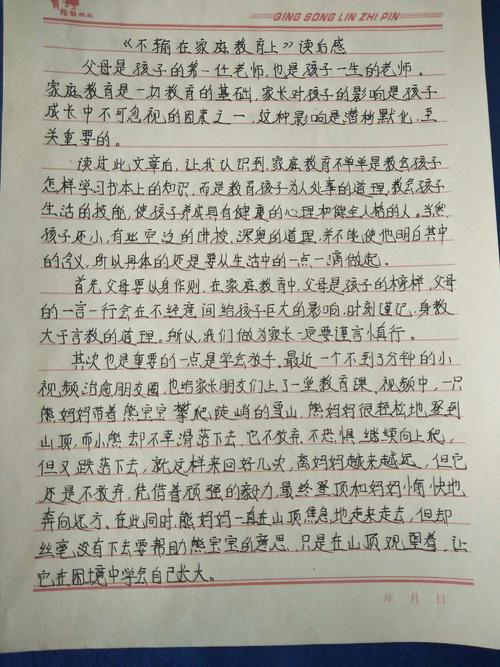 QING SONG LIN ZHI PIN
《不输在家庭教育上》读后感
父母是孩子的第一任老师,也是孩子一生的老师。
家庭教育是一切教育的基础,家长对孩子的影响是孩子
成长中不可忽视的因素之一,这种影响是潜移默化,至
关重要的。
读过此文章后,让我认识到,家庭教育不单单是教会孩子
怎样学习书本上的知识,而是教育孩子为人处事的道理,教会孩子
生活的技能,使孩子养成具有健康的心理和健全人格的人。当然,
孩子还小,有些空泛的讲授,深奥的道理,并不能使他明白其中
的含义,所以具体的还是要从生活中的一点一滴做起。
首先,父母要以身作则,在家庭教育中,父母是孩子的榜样,父母
的一言一行会在不经意间给孩子巨大的影响,时刻谨记,身教
大于言教的道理。所以,我们做为家长一定要谨言慎行。
其次也是重要的一点是学会放手。最近一个不到3分钟的小
视频治愈朋友圈,也给家长朋友们上了一堂教育课,视频中,一只
熊妈妈带着熊宝宝攀爬陡峭的雪山,熊妈妈很轻松地登到
山顶,而小熊却不幸滑落下去,它不放弃,不恐惧继续向上爬,
但又跌落下去,就这样来回好几次,离妈妈越来越远,但它
还是不放弃,凭借着顽强的毅力,最终登顶和妈妈愉快地
奔向远方。在此同时,熊妈妈一直在山顶焦急地走来走去,但却
丝毫没有下去要帮助熊宝宝的意思,只是在山顶观望着,让
它在困境中学会自己长大。
年 月 日